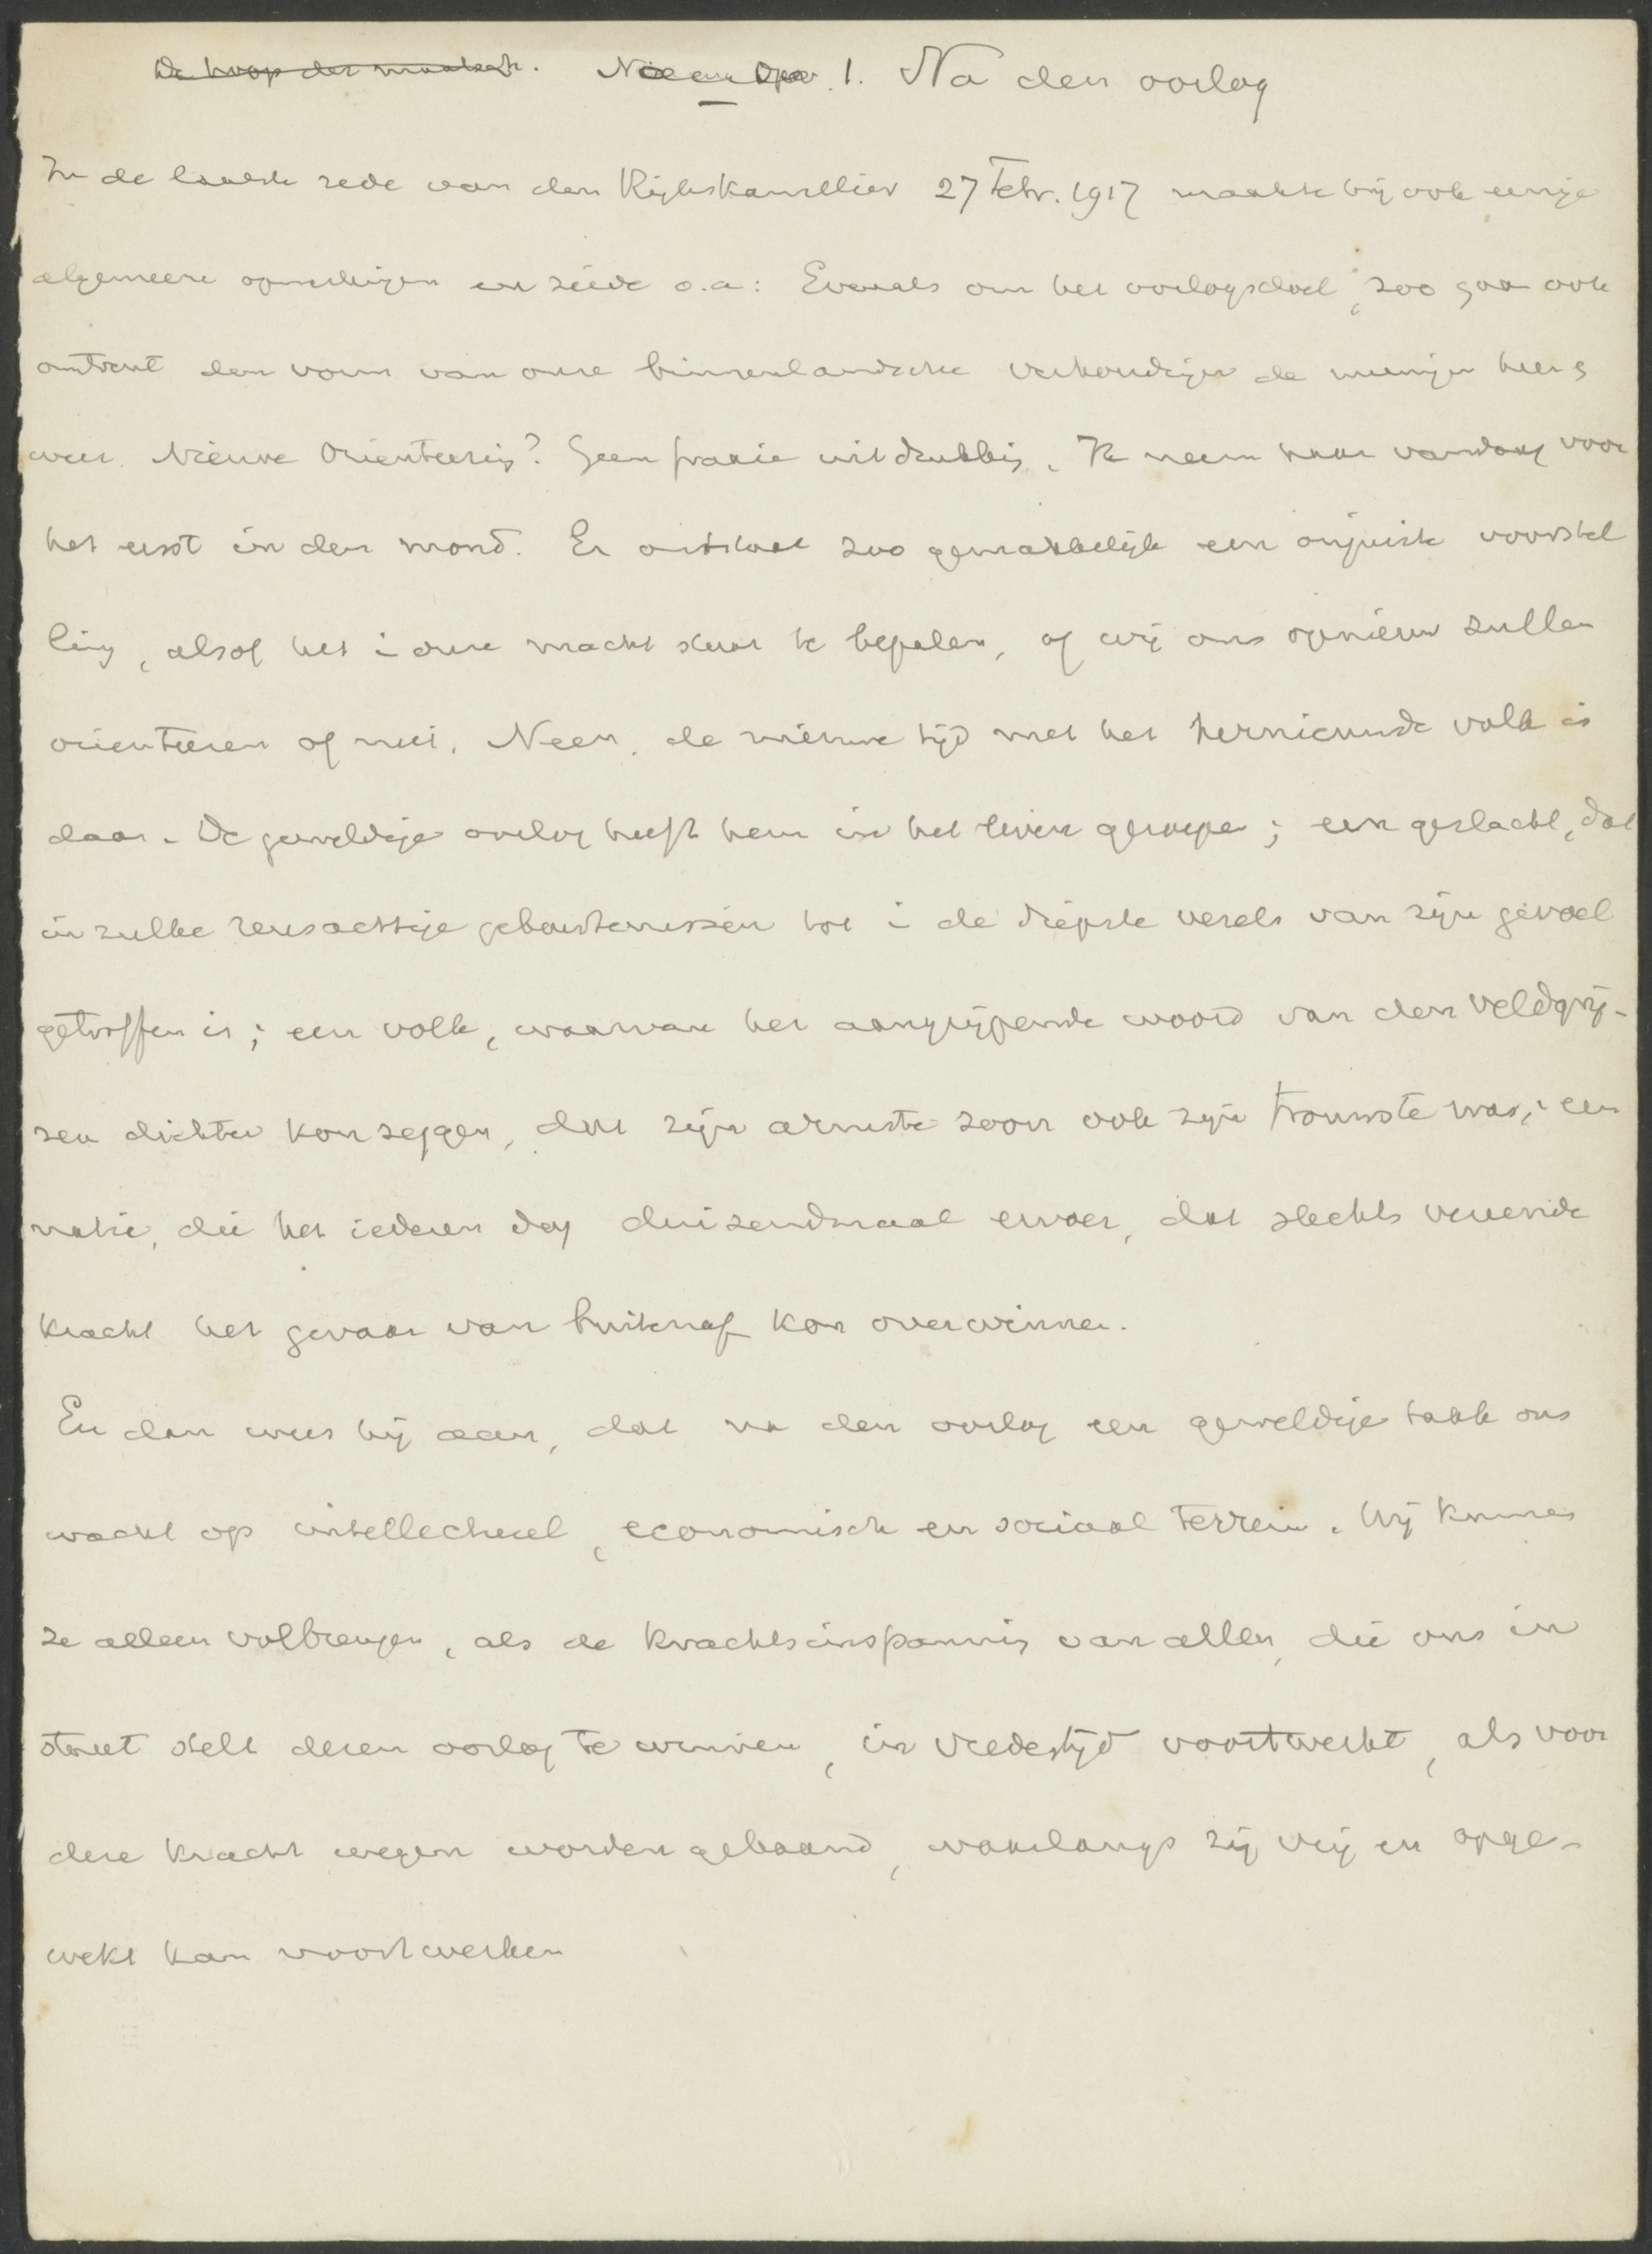 De hoop der maatsch. 1. Na den oorlog
In de laatste rede van den Rijkskanselier 27 Febr. 1917 maakte hij ook eenige
algemeene opmerkingen en zeide o.a: Evenals om het oorlogsdoel, zoo gaan ook
omtrent den vorm van onze binnenlandsche verhoudingen de meeningen heen &
weer. Nieuwe Orienteering? Geen fraaie uitdrukking. Ik neem haar vandaag voor
het eerst in den mond. Er ontstaat zoo gemakkelijk een onjuiste voorstel
ling, alsof het in onze macht staat te bepalen, of wij ons opnieuw zullen
orienteeren of niet. Neen, de nieuwe tijd met het hernieuwde volk is
daar. De geweldige oorlog heeft hem in het leven geroepen; een geslacht, dat
in zulke reusachtige gebeurtenissen tot in de diepste vezels van zijn gevoel
getroffen is; een volk, waarvan het aangrijpende woord van den veldgrij-
zen dichter kon zeggen, dat zijn armste zoon ook zijn trouwste was; een
natie, die het iederen dag duizendmaal ervaer, dat slechts vereende
kracht het gevaar van buitenaf kon overwinnen.
En dan wees hij aan, dat na den oorlog een geweldige taak ons
wacht op intellectueel, economisch en sociaal terrein. Wij kunnen
ze alleen volbrengen, als de krachtsinspanning van allen, die ons in
staat stelt dezen oorlog te winnen, in vredestijd voortwerkt, als voor
deze kracht wegen worden gebaand, waarlangs zij vrij en opge-
wekt kan voortwerken